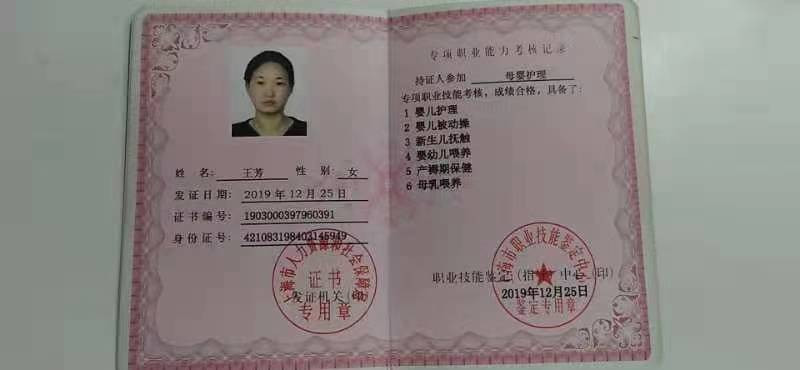 姓 名: 王芳 性 别: 女
发证日期: 2019 年 12 月 25 日
证书编号: 1903000397960391
身份证号: 421083198403145949
上海市人力资源和社会保障局
证书
发证机关(印
专用章
专项职业能力考核记录
持证人参加 母婴护理
专项职业技能考核,成绩合格,具备了:
1 婴儿护理
2 婴儿被动操
3 新生儿抚触
4 婴幼儿喂养
5 产褥期保健
6 母乳喂养
上海市职业技能鉴定中心
职业技能鉴定(指导)中心(印)
2019年12月25日
鉴定专用章